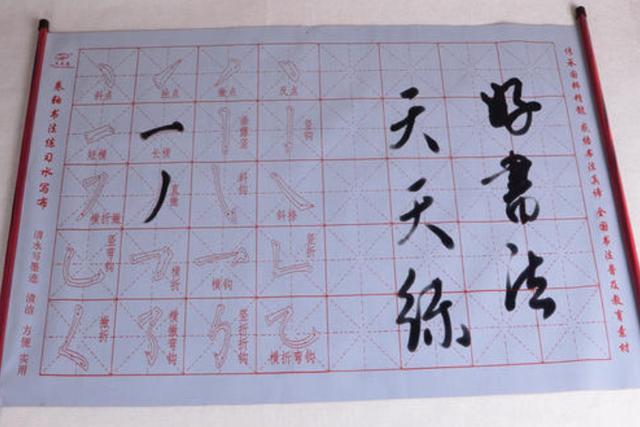 好書法
天天练
传承国粹精髓 感悟书法真谛 全国书法普及教育素材
卷轴书法练习水写布
清水写墨迹 清洁 方便 实用
斜点
撇点
反点
短横
长横
垂露竖
竖钩
横折撇
直撇
斜钩
斜捺
竖弯钩
横折
横钩
竖折
撇折
横撇弯钩
竖折折钩
横折弯钩